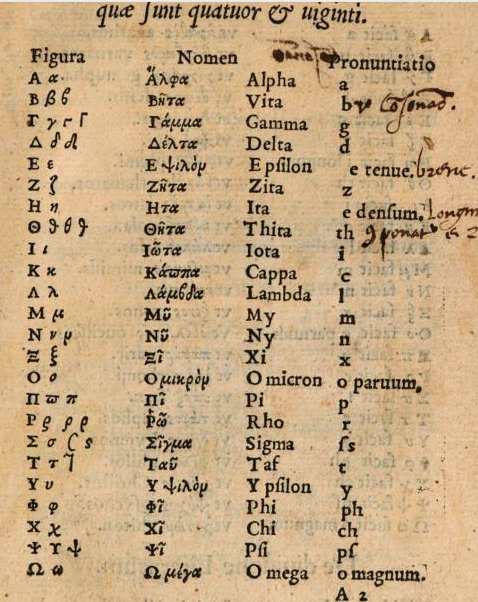 quæ sunt quatuor & uiginti.
Figura Nomen Pronuntiatio
Α α Ἄλφα Alpha a
Β β ϐ Βῆτα Vita b
Γ γ Γάμμα Gamma g
Δ δ Δέλτα Delta d
Ε ε Ε ψιλὸν Epsilon e tenue. breue.
Ζ ζ Ζῆτα Zita z
Η η Ητα Ita e densum. Longum
Θ θ ϑ Θῆτα Thita th
Ι ι Ἰῶτα Iota i
Κ κ Κάππα Cappa c
Λ λ Λάμβδα Lambda l
Μ μ Μῦ My m
Ν ν Νῦ Ny n
Ξ ξ Ξῖ Xi x
Ο ο Ο μικρὸν Omicron o paruum.
Π π ϖ Πῖ Pi p
Ρ ρ ϱ Ῥῶ Rho r
Σ σ ς Σῖγμα Sigma ſs
Τ τ Ταῦ Taf t
Υ υ Υ ψιλὸν Ypsilon y
Φ φ Φῖ Phi ph
Χ χ Χῖ Chi ch
Ψ ψ Ψῖ Pſi pſ
Ω ω Ω μέγα Omega o magnum.
A 2